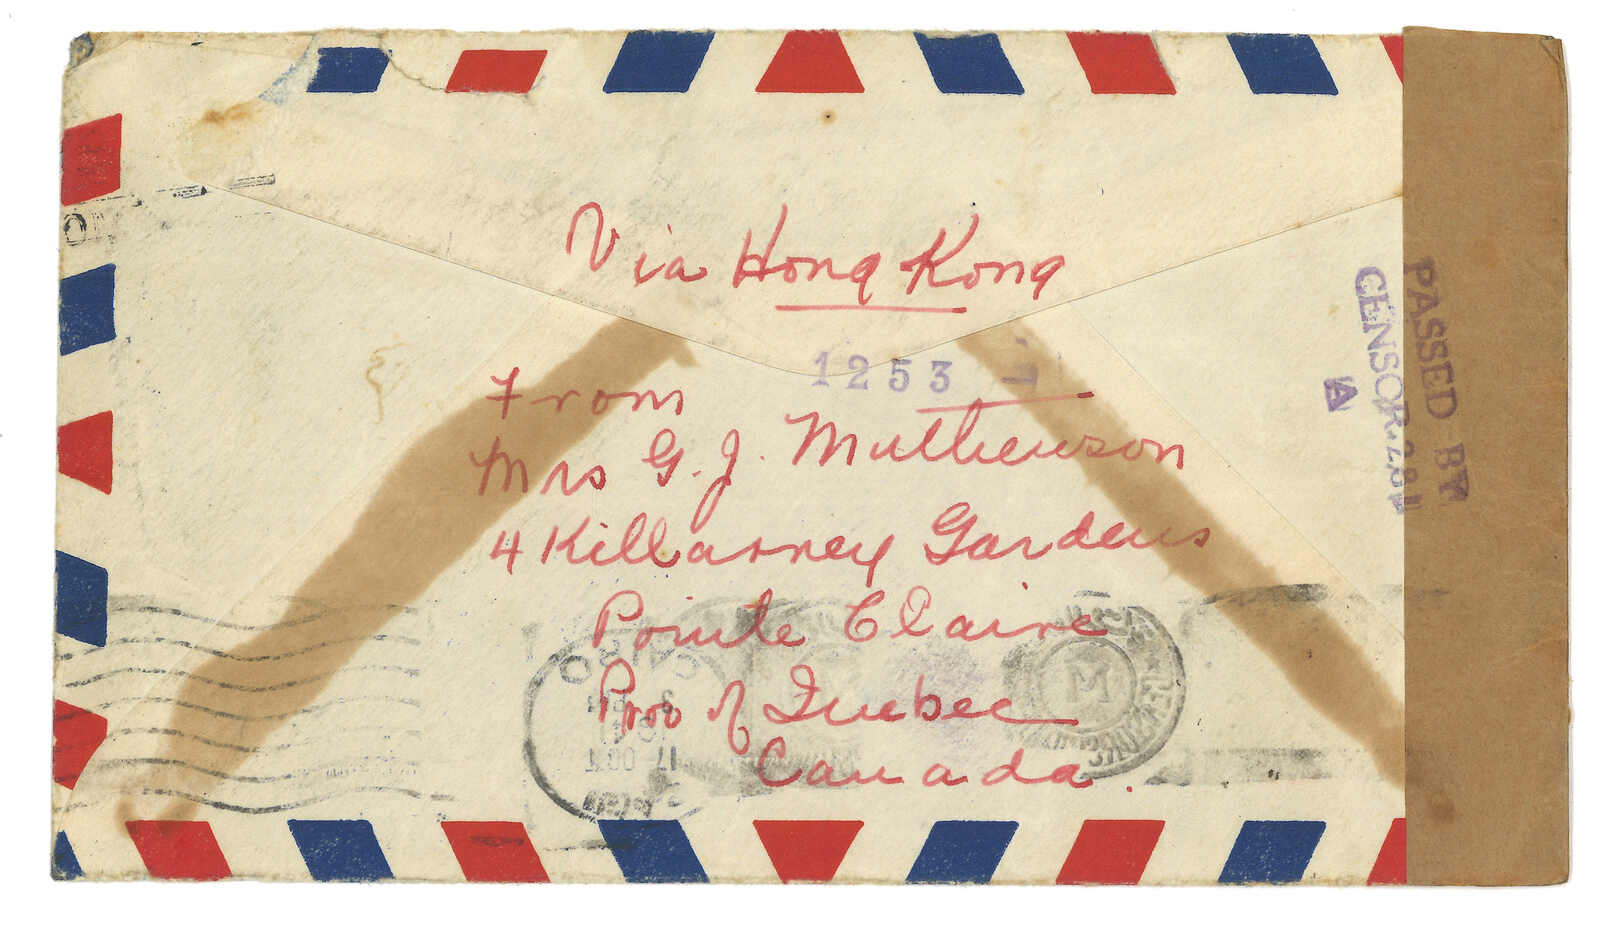 Via Hong Kong
1253
From
Mrs G. J. Mathewson
4 Killarney Gardens
Pointe Claire
Prov of Quebec
Canada.
PASSED BY
CENSOR
A
CAIRO
17 OCT
M